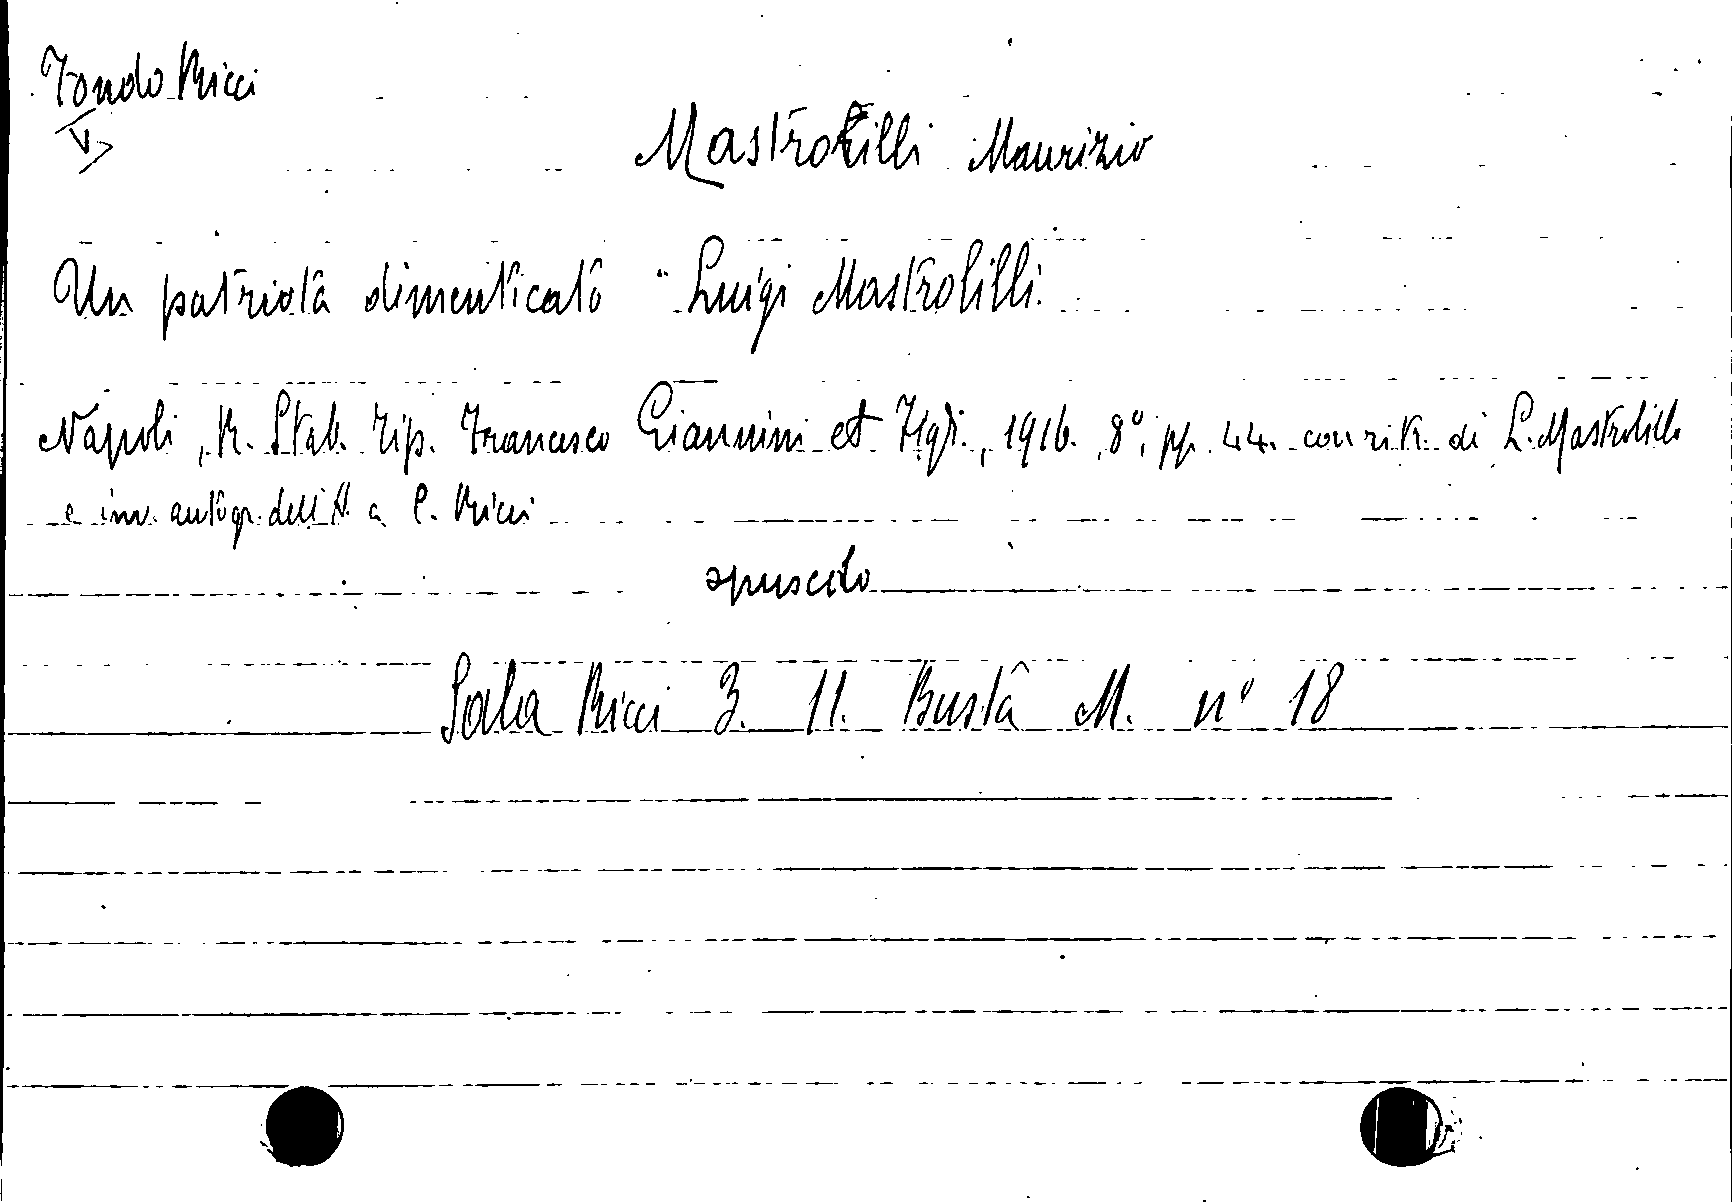 Fondo Ricci
V
Mastrolilli Maurizio
Un patriota dimenticato "Luigi Mastrolilli.
Napoli, R. Stab. Tip. Francesco Giannini et Figli., 1916. 8°, pp. 44. con ritr. di L. Mastrolilli
e inv. autogr. dell'A. a C. Ricci
opuscolo
Sala Ricci 3. 11. Busta M. n° 18